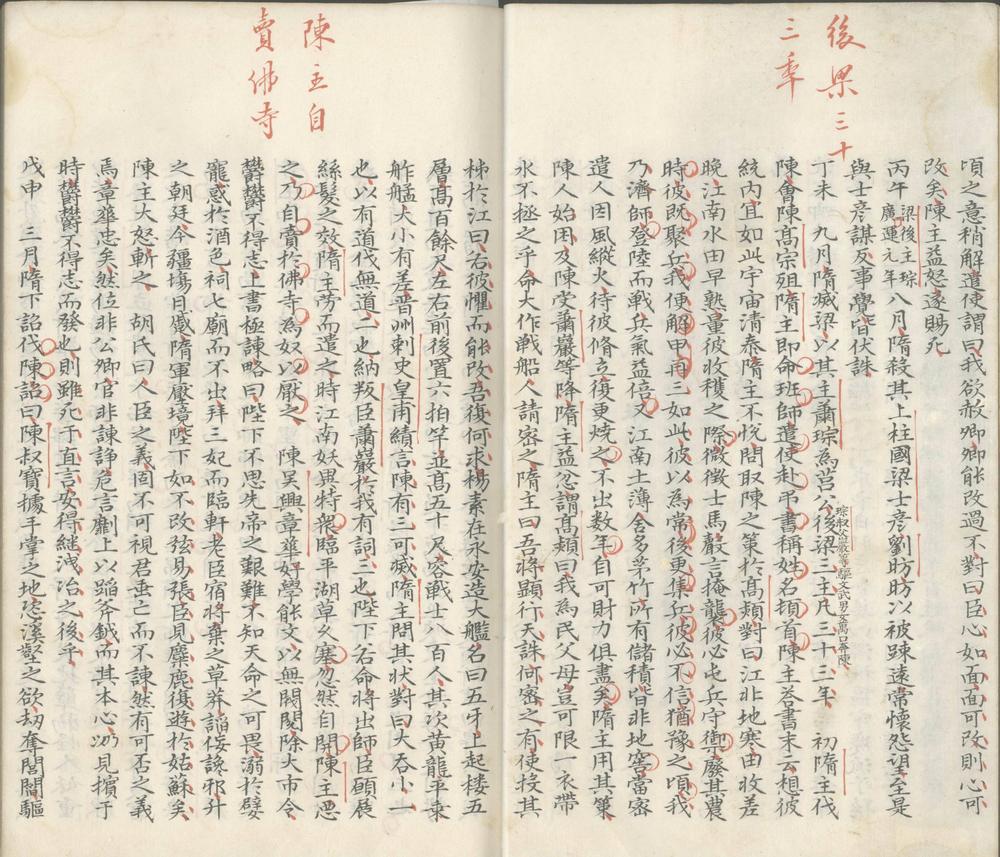 後梁三十
三年
頃之意稍解遣使謂曰我欲赦卿卿能改過不對曰臣心如面面可改則心可
改矣陳主益怒遂賜死
丙午 梁後主琮廣運元年 八月隋殺其上柱國梁士彥劉昉昉以被踈遠常懷怨望至是
與士彥謀反事覺皆伏誅
丁未 九月隋滅梁以其主蕭琮為莒公後梁三主凡三十三年 初隋主伐
琮叔父巖等驅文武男女萬口奔陳
陳會陳高宗殂隋主即命班師遣使赴弔書稱姓名頓首陳主荅書末云想彼
統內宜如此宇宙清泰隋主不悅問取陳之策於高熲對曰江非地寒田收差
晚江南水田早熟量彼收穫之際微徵士馬聲言掩襲彼必屯兵守禦廢其農
時彼既聚兵我便解甲再三如此彼以為常後更集兵彼必不信猶豫之頃我
乃濟師登陸而戰兵氣益倍又江南土薄舍多茅竹所有儲積皆非地窖當密
遣人因風縱火待彼脩立復更燒之不出数年自可財力俱盡矣隋主用其策
陳人始困及陳受蕭巖等降隋主益忿謂高熲曰我為民父母豈可限一衣帶
水不拯之乎命大作戰船人請密之隋主曰吾將顯行天誅何密之有使投其
陳主自
賣佛寺
柹於江曰若彼懼而能改吾復何求楊素在永安造大艦名曰五牙上起樓五
層高百餘尺左右前後置六拍竿並高五十尺容戰士八百人其次黃龍平乗
舴艋大小有差晉州刺史皇甫績言陳有三可滅隋主問其狀對曰大吞小一
也以有道伐無道二也納叛臣蕭巖於我有詞三也陛下若命將出師臣願展
絲髮之效隋主勞而遣之時江南妖異特衆臨平湖草久塞忽然自開陳主惡
之乃自賣於佛寺為奴以厭之 陳吳興章華好學能文以無閥閱除大市令
鬱鬱不得志上書極諫略曰陛下不思先帝之艱難不知天命之可畏溺於嬖
寵惑於酒色祠七廟而不出拜三妃而臨軒老臣宿將棄之草莽謟佞讒邪升
之朝廷今疆埸日蹙隋軍壓境陛下如不改弦易張臣見麋鹿復遊於姑蘇矣
陳主大怒斬之 胡氏曰人臣之義固不可視君垂亡而不諫然有可否之義
焉章華忠矣然位非公卿官非諫諍危言劘上以蹈斧鉞而其本心乃見擯于
時鬱鬱不得志而發也則雖死于直言安得継洩冶之後乎
戊申 三月隋下詔伐陳詔曰陳叔寶據手掌之地恣溪壑之欲劫奪閭閻驅